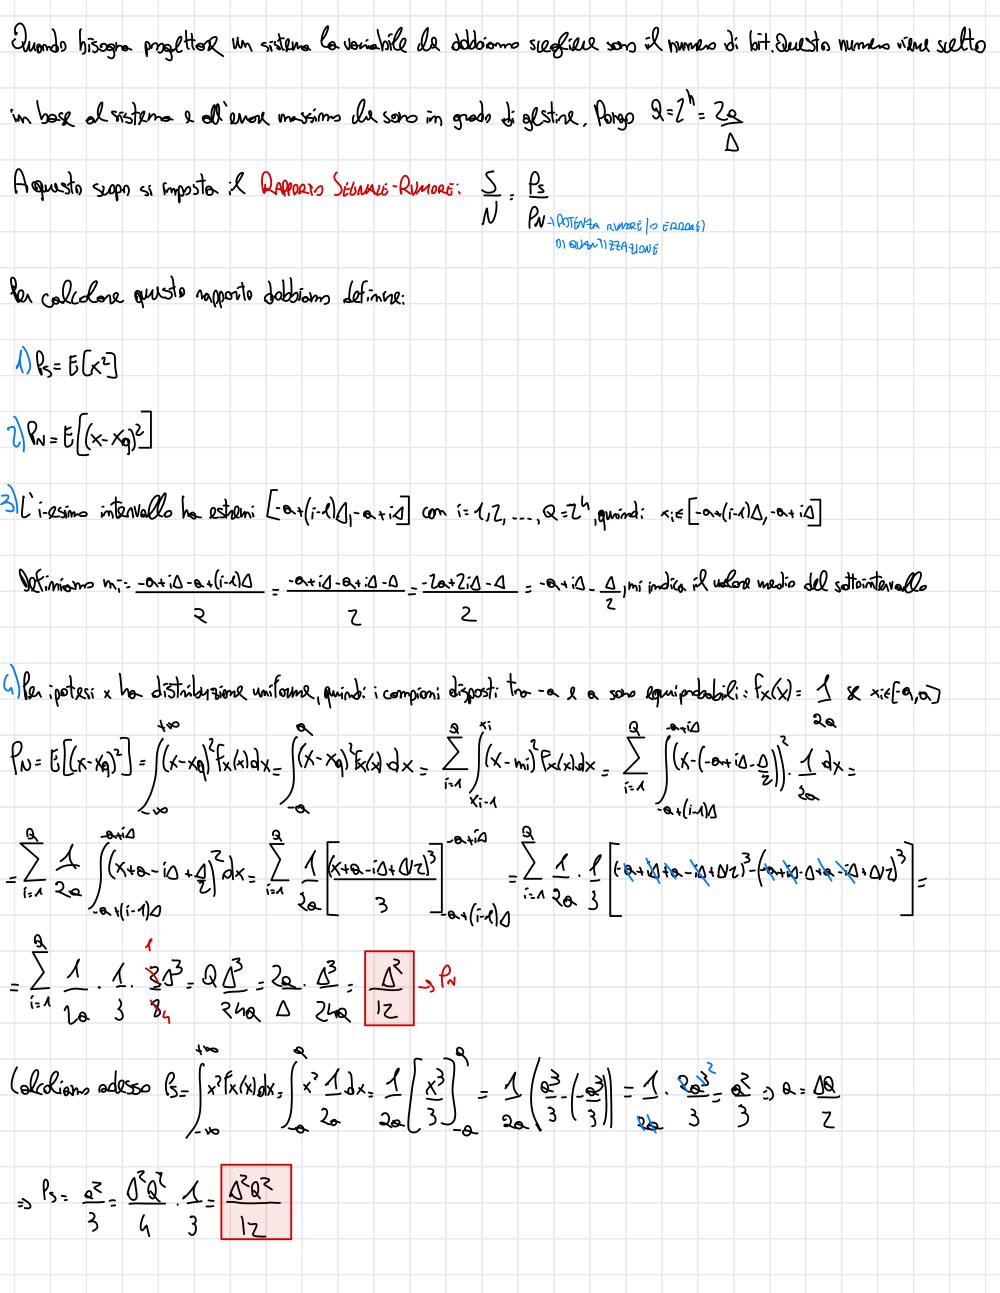 Quando bisogna progettare un sistema la variabile da dobbiamo scegliere sono il numero di bit. Questo numero viene scelto
in base al sistema e all'errore massimo che sono in grado di gestire. Pongo Q=2^n = 2a/Δ
A questo scopo si imposta il RAPPORTO SEGNALE-RUMORE: S/N = Ps/PN → POTENZA RUMORE (O ERRORE)
DI QUANTIZZAZIONE
Per calcolare questo rapporto dobbiamo definire:
1) Ps = E[x²]
2) PN = E[(x-xq)²]
3) L'i-esimo intervallo ha estremi [-a+(i-1)Δ, -a+iΔ] con i=1,2,....,Q=2^n, quindi: xi∈[-a+(i-1)Δ, -a+iΔ]
Definiamo mi = (-a+iΔ-a+(i-1)Δ)/2 = (-a+iΔ-a+iΔ-Δ)/2 = (-2a+2iΔ-Δ)/2 = -a+iΔ-Δ/2, mi indica il valore medio del sottointervallo
4) Per ipotesi x ha distribuzione uniforme, quindi i campioni disposti tra -a e a sono equiprobabili: fx(x) = 1/2a se xi∈[-a,a]
PN = E[(x-xq)²] = ∫_{-∞}^{+∞} (x-xq)² fx(x)dx = ∫_{-a}^{a} (x-xq)² fx(x)dx = Σ_{i=1}^{Q} ∫_{xi-1}^{xi} (x-mi)² fx(x)dx = Σ_{i=1}^{Q} ∫_{-a+(i-1)Δ}^{-a+iΔ} (x-(-a+iΔ-Δ/2))² · 1/2a dx =
= Σ_{i=1}^{Q} 1/2a ∫_{-a+(i-1)Δ}^{-a+iΔ} (x+a-iΔ+Δ/2)² dx = Σ_{i=1}^{Q} 1/2a [(x+a-iΔ+Δ/2)³/3]_{-a+(i-1)Δ}^{-a+iΔ} = Σ_{i=1}^{Q} 1/2a · 1/3 [(-a+iΔ+a-iΔ+Δ/2)³-(-a+iΔ-Δ+a-iΔ+Δ/2)³] =
= Σ_{i=1}^{Q} 1/2a · 1/3 · 2 1/8 4 Δ³ = Q Δ³/24a = 2a/Δ · Δ³/24a = Δ²/12 → PN
Calcoliamo adesso Ps = ∫_{-∞}^{+∞} x² fx(x)dx = ∫_{-a}^{a} x² 1/2a dx = 1/2a [x³/3]_{-a}^{a} = 1/2a (a³/3-(-a³/3)) = 1/2a · 2a³/3 = a²/3 ⇒ a = ΔQ/2
⇒ Ps = a²/3 = Δ²Q²/4 · 1/3 = Δ²Q²/12